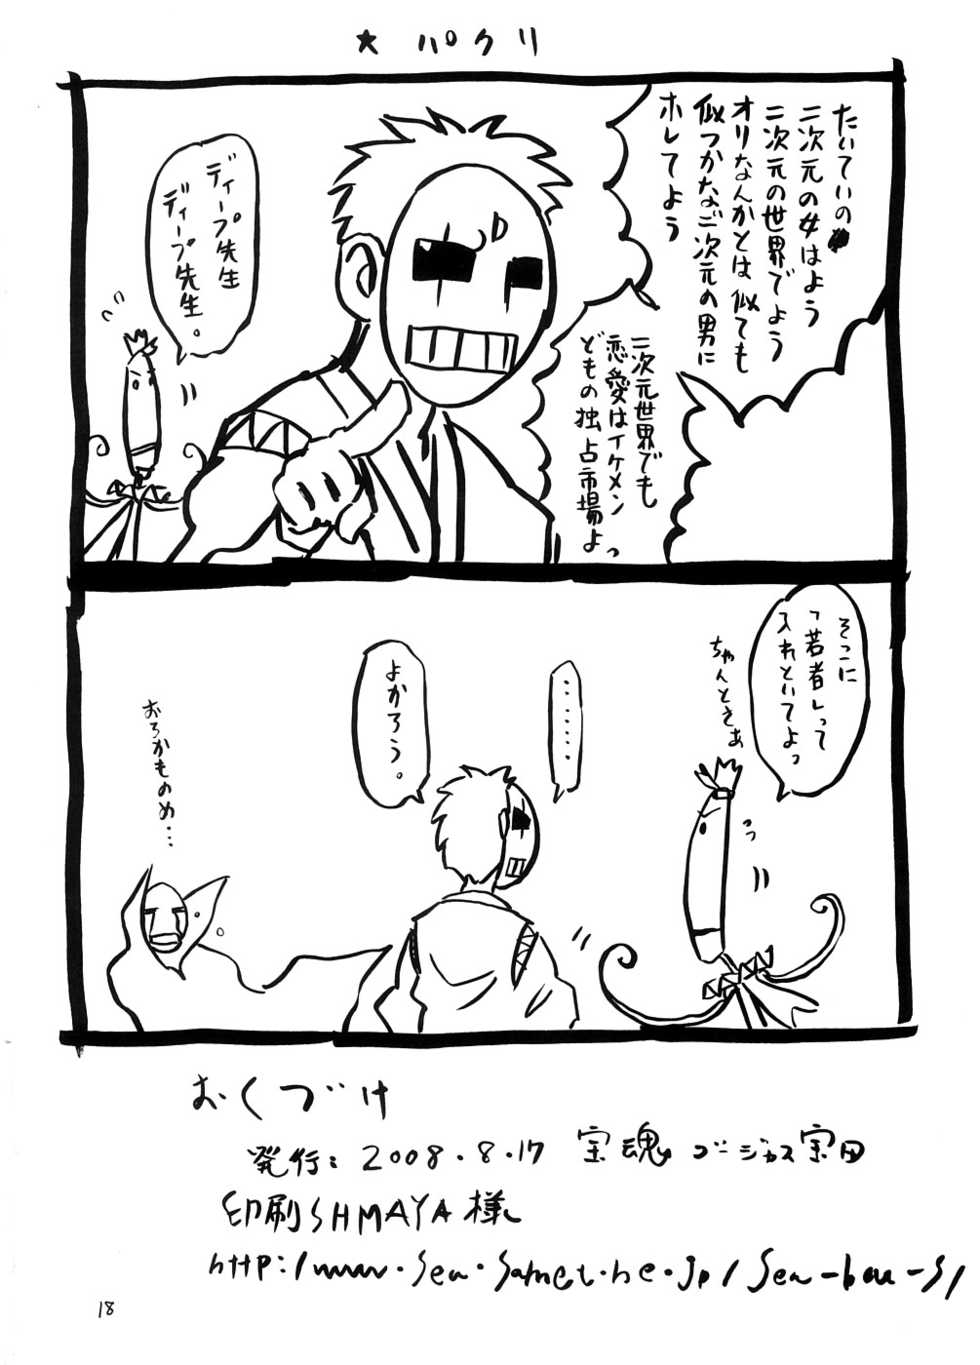 ★ パクリ
たいていの
二次元の女はよう
二次元の世界でよう
オリなんかとは似ても
似つかな二次元の男に
ホレてよう
二次元世界でも
恋愛はイケメン
どもの独占市場よっ
ディープ先生
ディープ先生。
そこに
「若者」って
入れといてよっ
ちゃんとさぁ
・・・・・・・
よかろう。
おろかものめ…
おくづけ
発行：2008.8.17 宝魂 ゴージャス宝田
印刷SHMAYA様
18